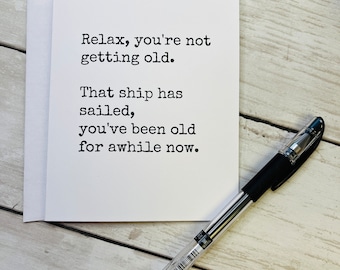 Relax, you're not
getting old.
That ship has
sailed,
you've been old
for awhile now.